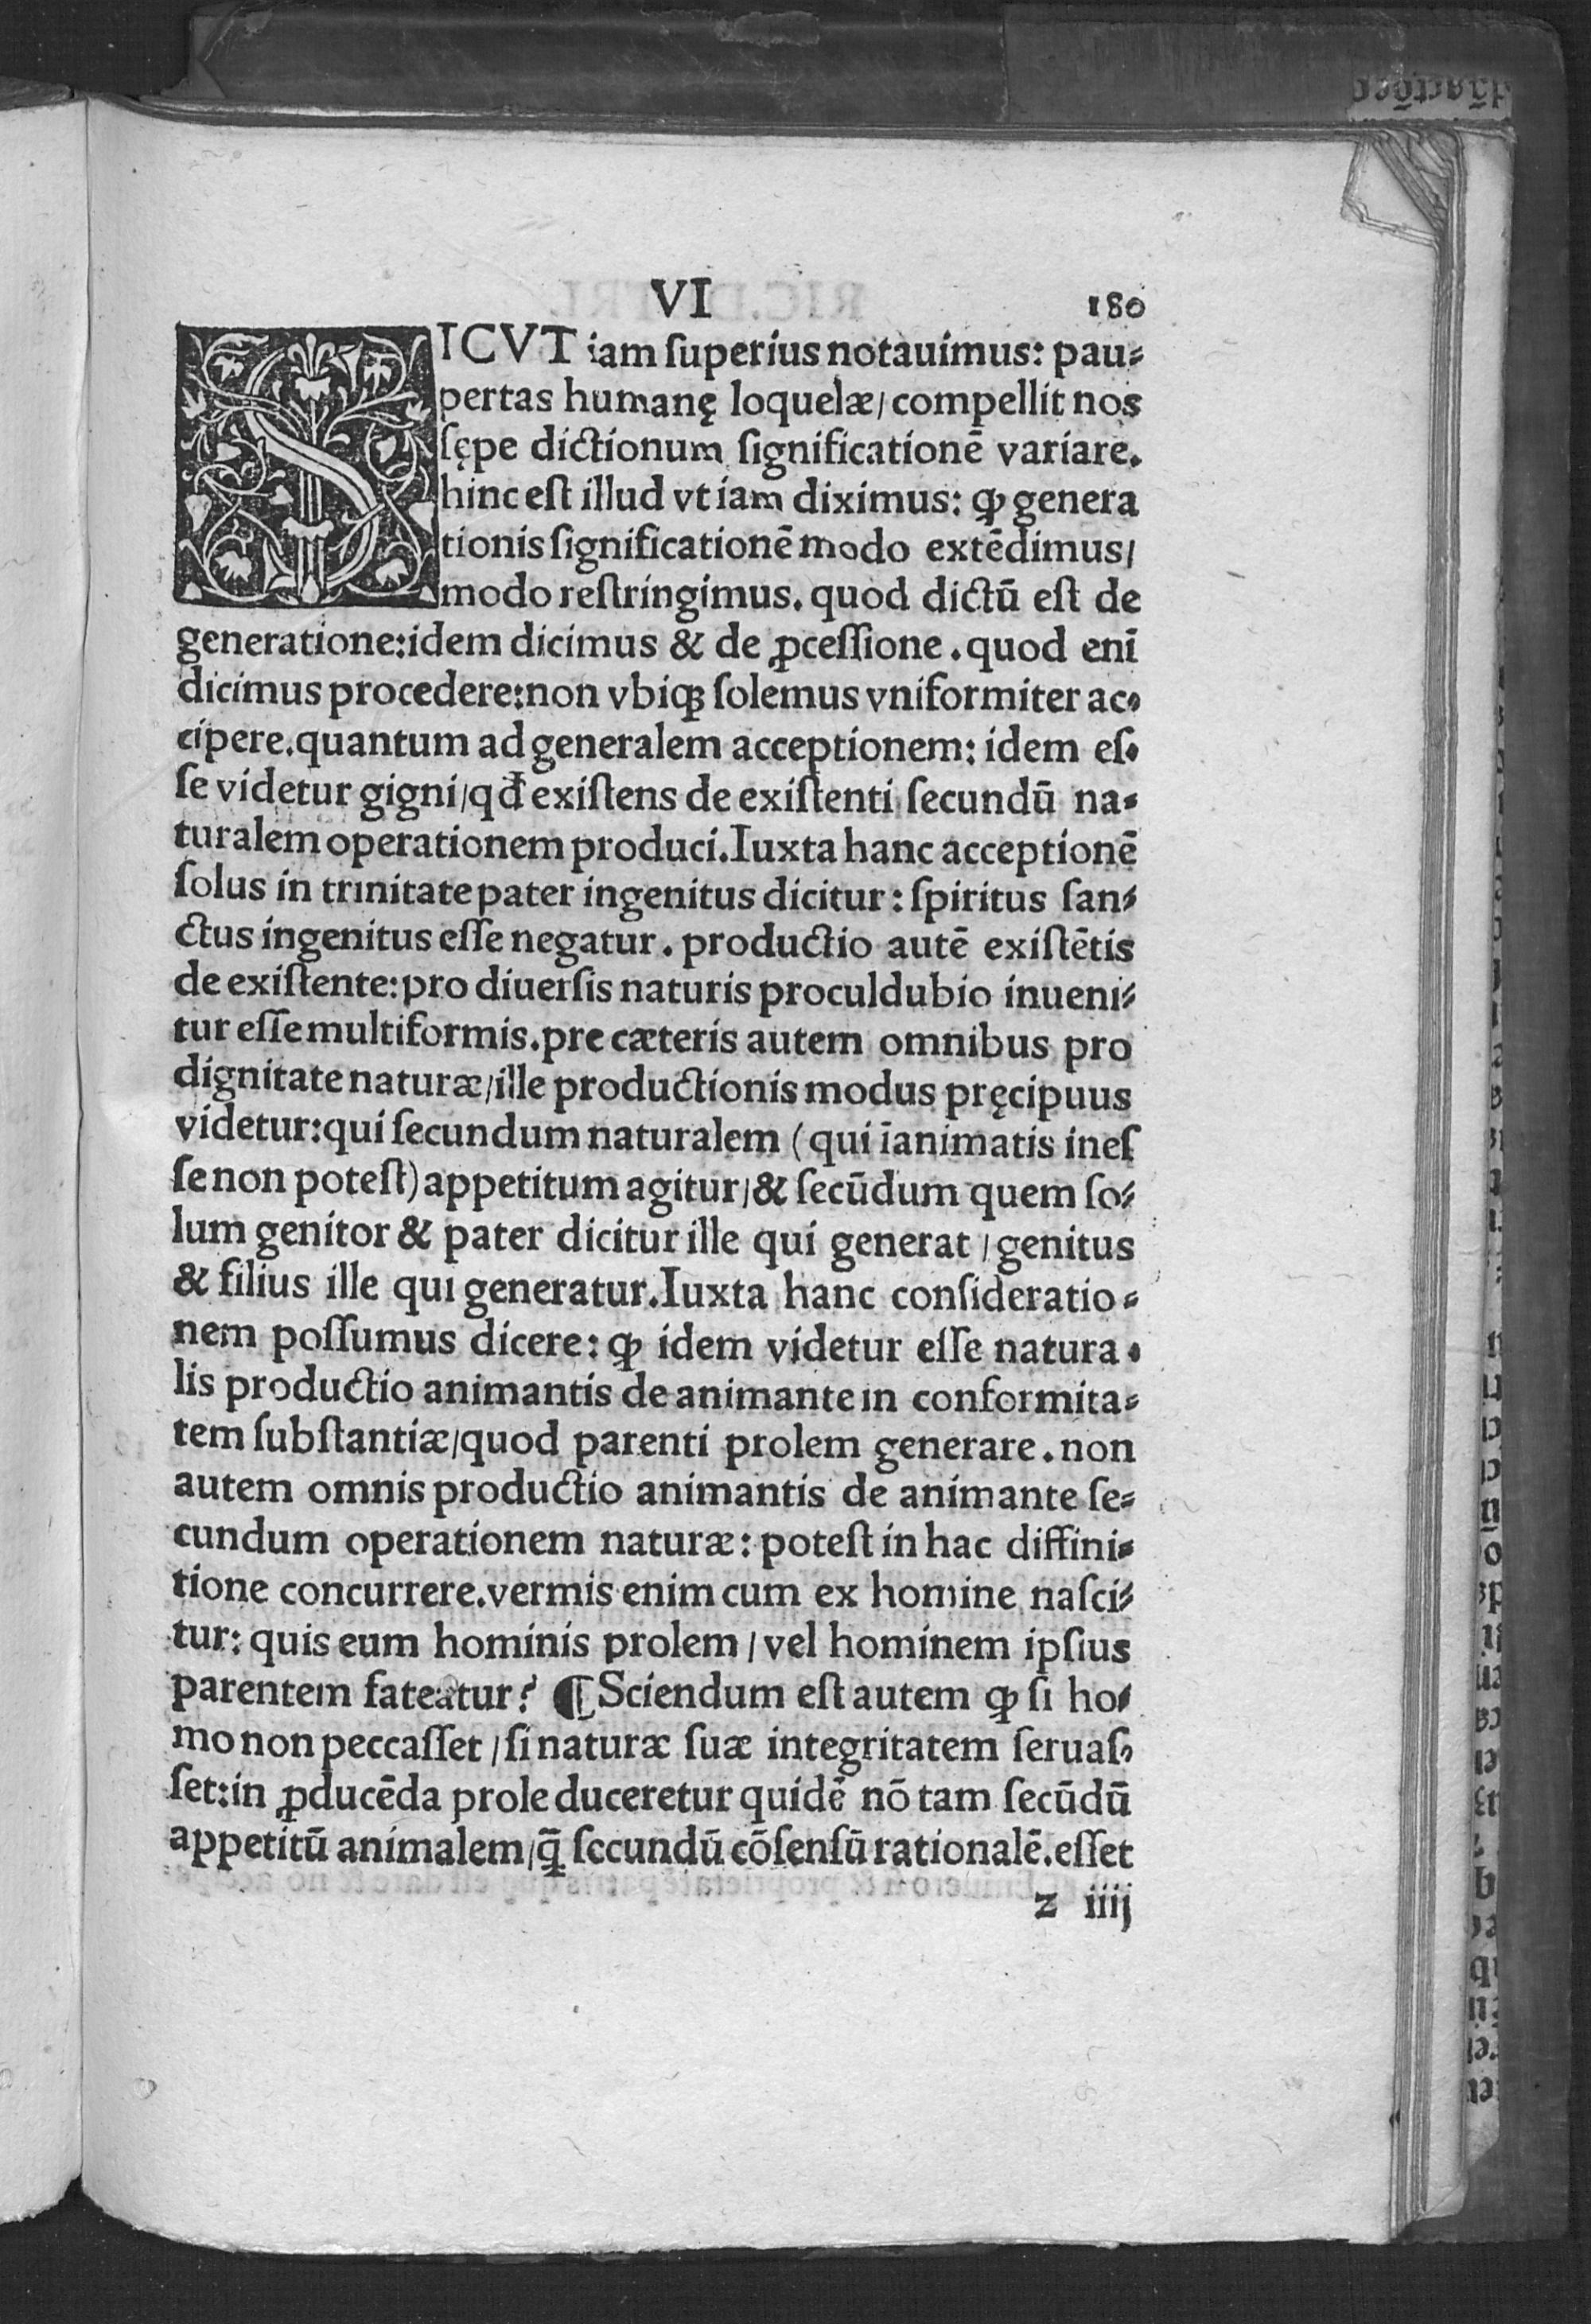 VI 180
SICVT iam ſuperius notauimus: pau-
pertas humanę loquelæ/compellit nos
ſępe dictionum ſignificationē variare.
hinc eſt illud vt iam diximus: ꝙ genera
tionis ſignificationē modo extēdimus/
modo reſtringimus. quod dictū eſt de
generatione:idem dicimus & de ꝓceſſione. quod eni̅
dicimus procedere:non vbiqꝫ ſolemus vniformiter ac-
cipere.quantum ad generalem acceptionem: idem eſ-
ſe videtur gigni/qđ exiſtens de exiſtenti ſecundū na-
turalem operationem produci.Iuxta hanc acceptionē
ſolus in trinitate pater ingenitus dicitur: ſpiritus ſan-
ctus ingenitus eſſe negatur. productio autē exiſtētis
de exiſtente:pro diuerſis naturis proculdubio inueni-
tur eſſe multiformis.pre cæteris autem omnibus pro
dignitate naturæ/ille productionis modus pręcipuus
videtur:qui ſecundum naturalem (qui īanimatis ineſ
ſe non poteſt) appetitum agitur/& ſecūdum quem ſo-
lum genitor & pater dicitur ille qui generat/genitus
& filius ille qui generatur.Iuxta hanc conſideratio-
nem poſſumus dicere: ꝙ idem videtur eſſe natura-
lis productio animantis de animante in conformita-
tem ſubſtantiæ/quod parenti prolem generare. non
autem omnis productio animantis de animante ſe-
cundum operationem naturæ: poteſt in hac diffini-
tione concurrere.vermis enim cum ex homine naſci-
tur: quis eum hominis prolem/vel hominem ipſius
parentem fateatur? ¶ Sciendum eſt autem ꝙ ſi ho-
mo non peccaſſet/ſi naturæ ſuæ integritatem ſeruaſ-
ſet:in ꝓducēda prole duceretur quidē nō tam ſecūdū
appetitū animalem/q̄ ſecundū cōſenſū rationalē.eſſet
z iiij